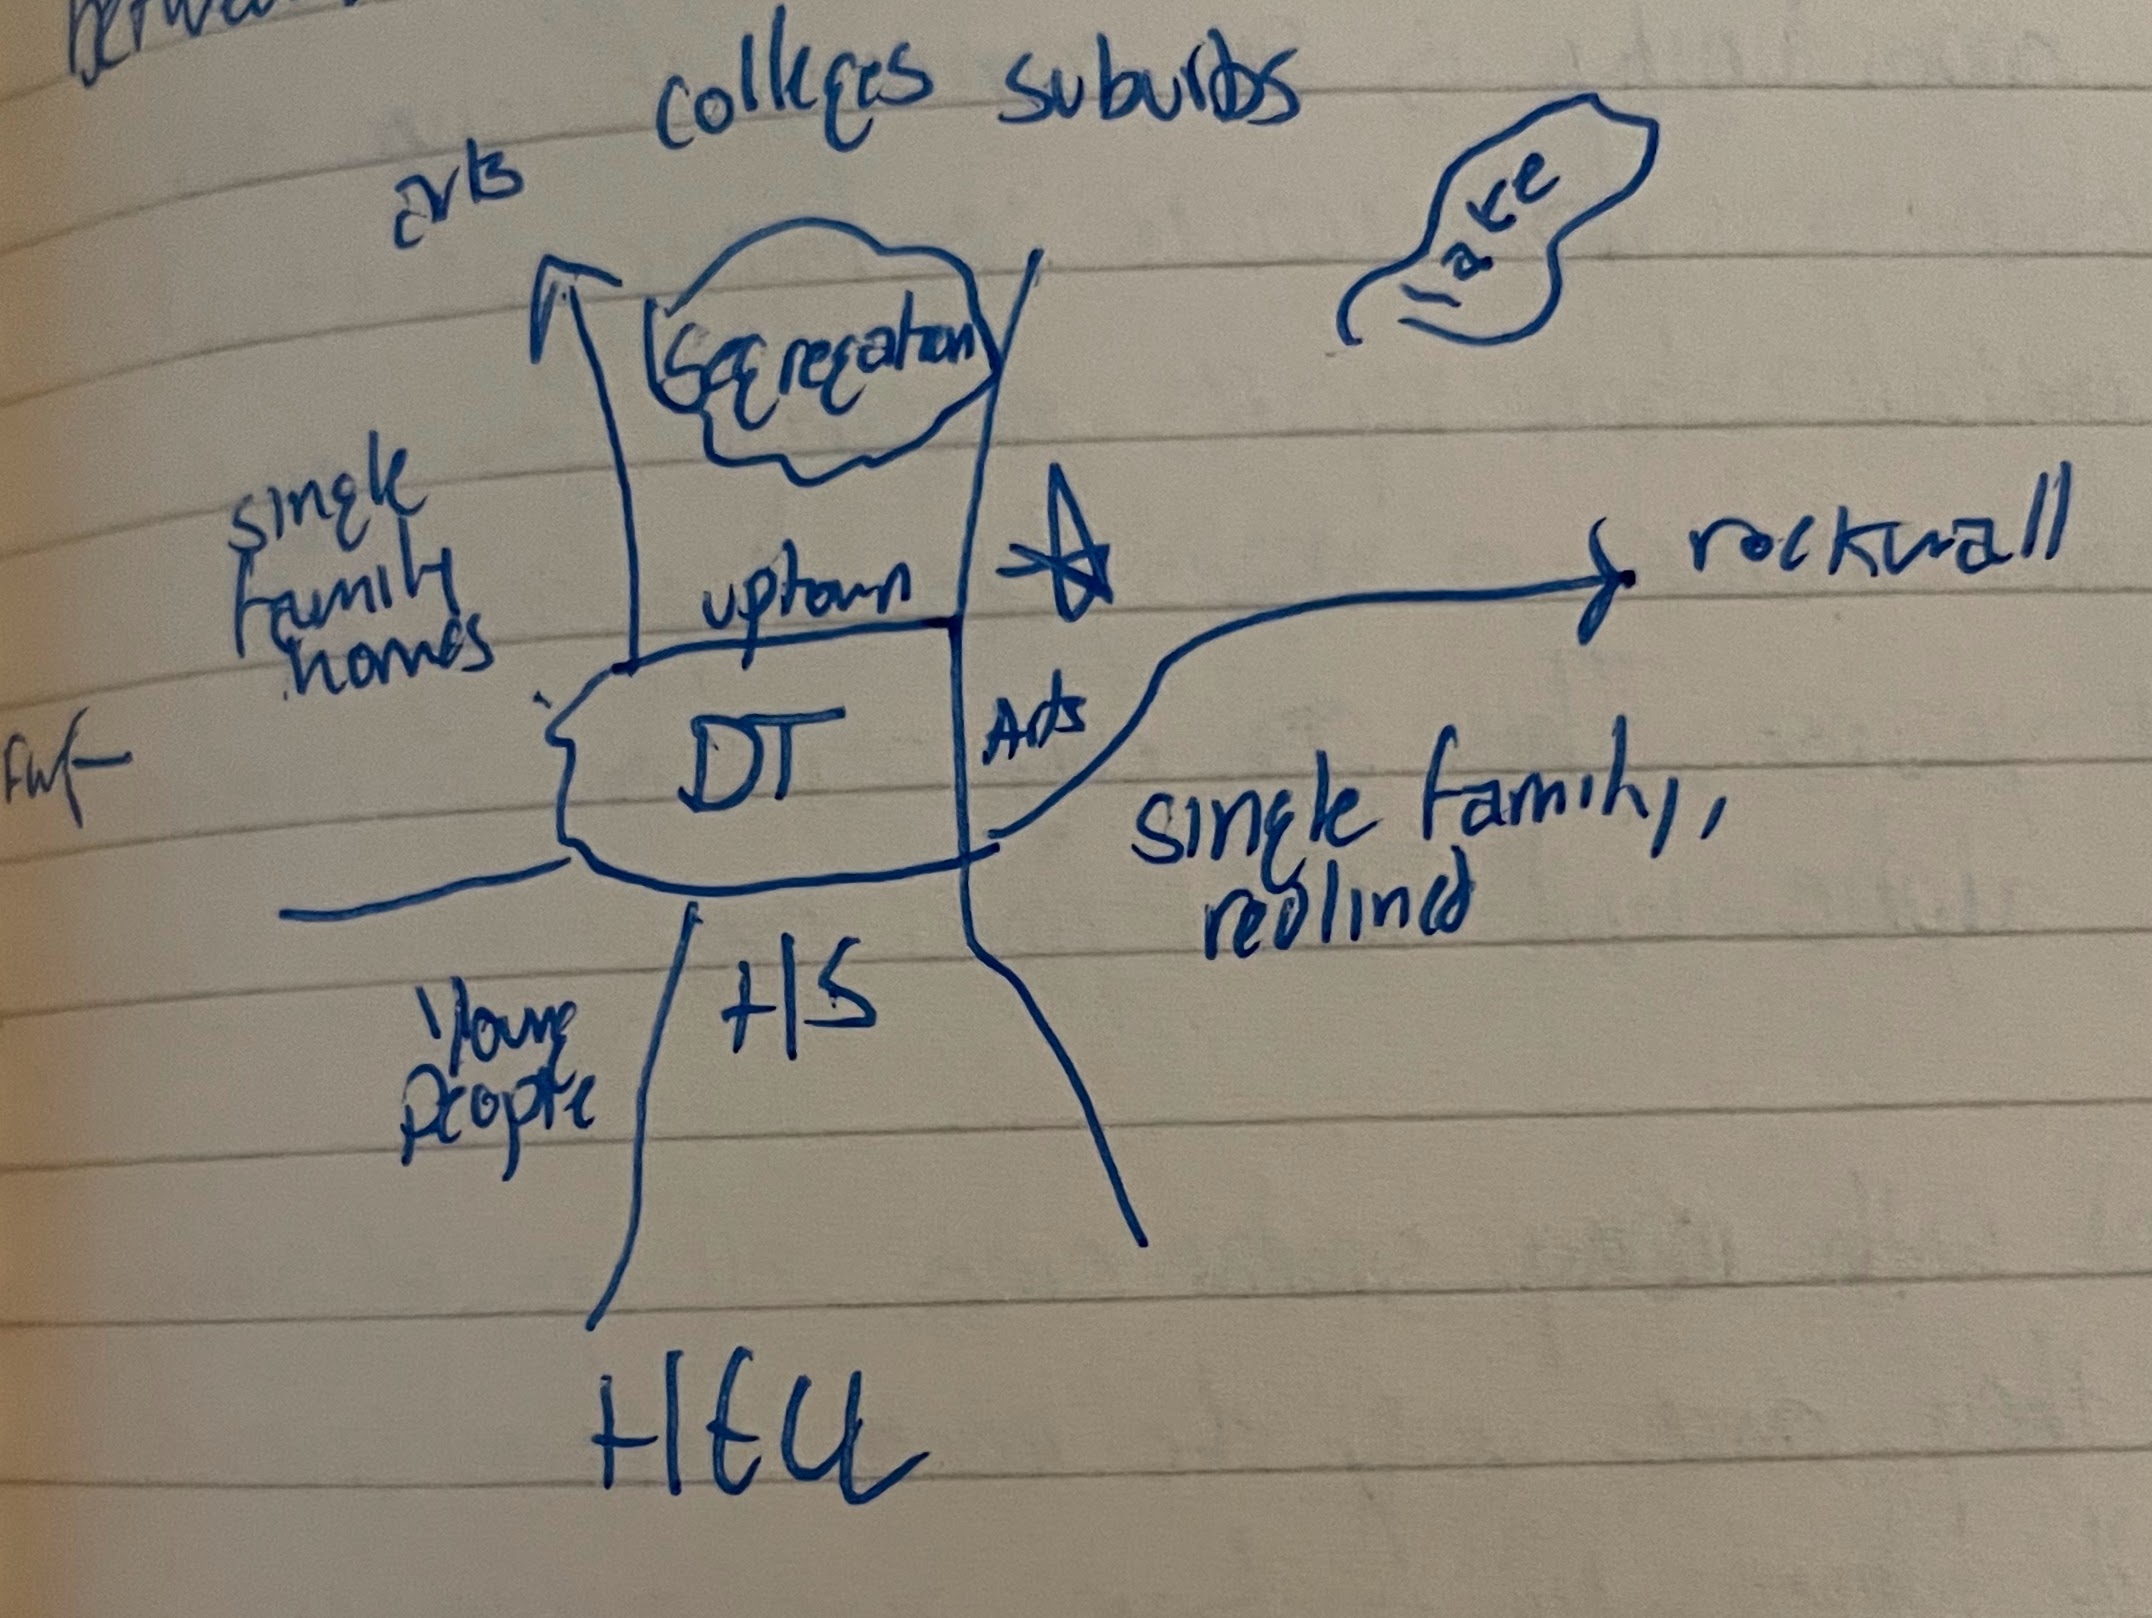 colleges suburbs
arts
Lake
Segregation
single
family
homes
uptown
rockwall
Arts
DT
FW
single family,
redlined
HS
Young
People
HELL